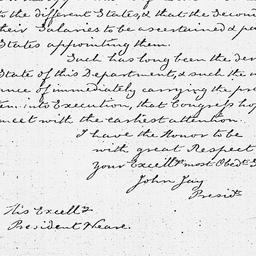 to the different States, & that the Second
their Salaries to be ascertained & pa
States appointing them.
Such has long been the der
State of this Department, & such the i
ance of immediately carrying the pro
tem into Execution, that Congress hop
meet with the earliest attention.
I have the Honor to be
with great Respect
your Excell.y's most Obed.t S
John Jay
Presid.t
His Excell.y
President Weare.